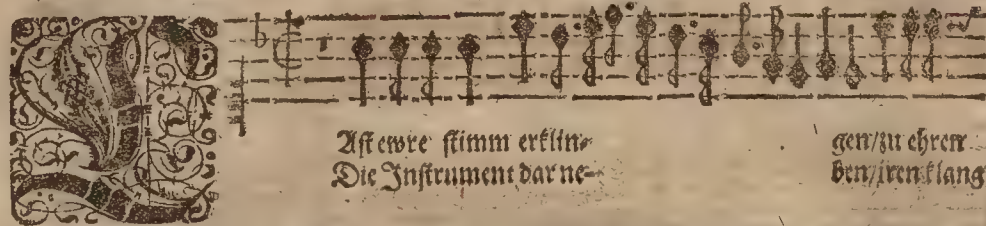 LAſt ewre ſtimm erklin⸗ gen/zu ehren
Die Inſtrument dar ne⸗ ben/iren klang